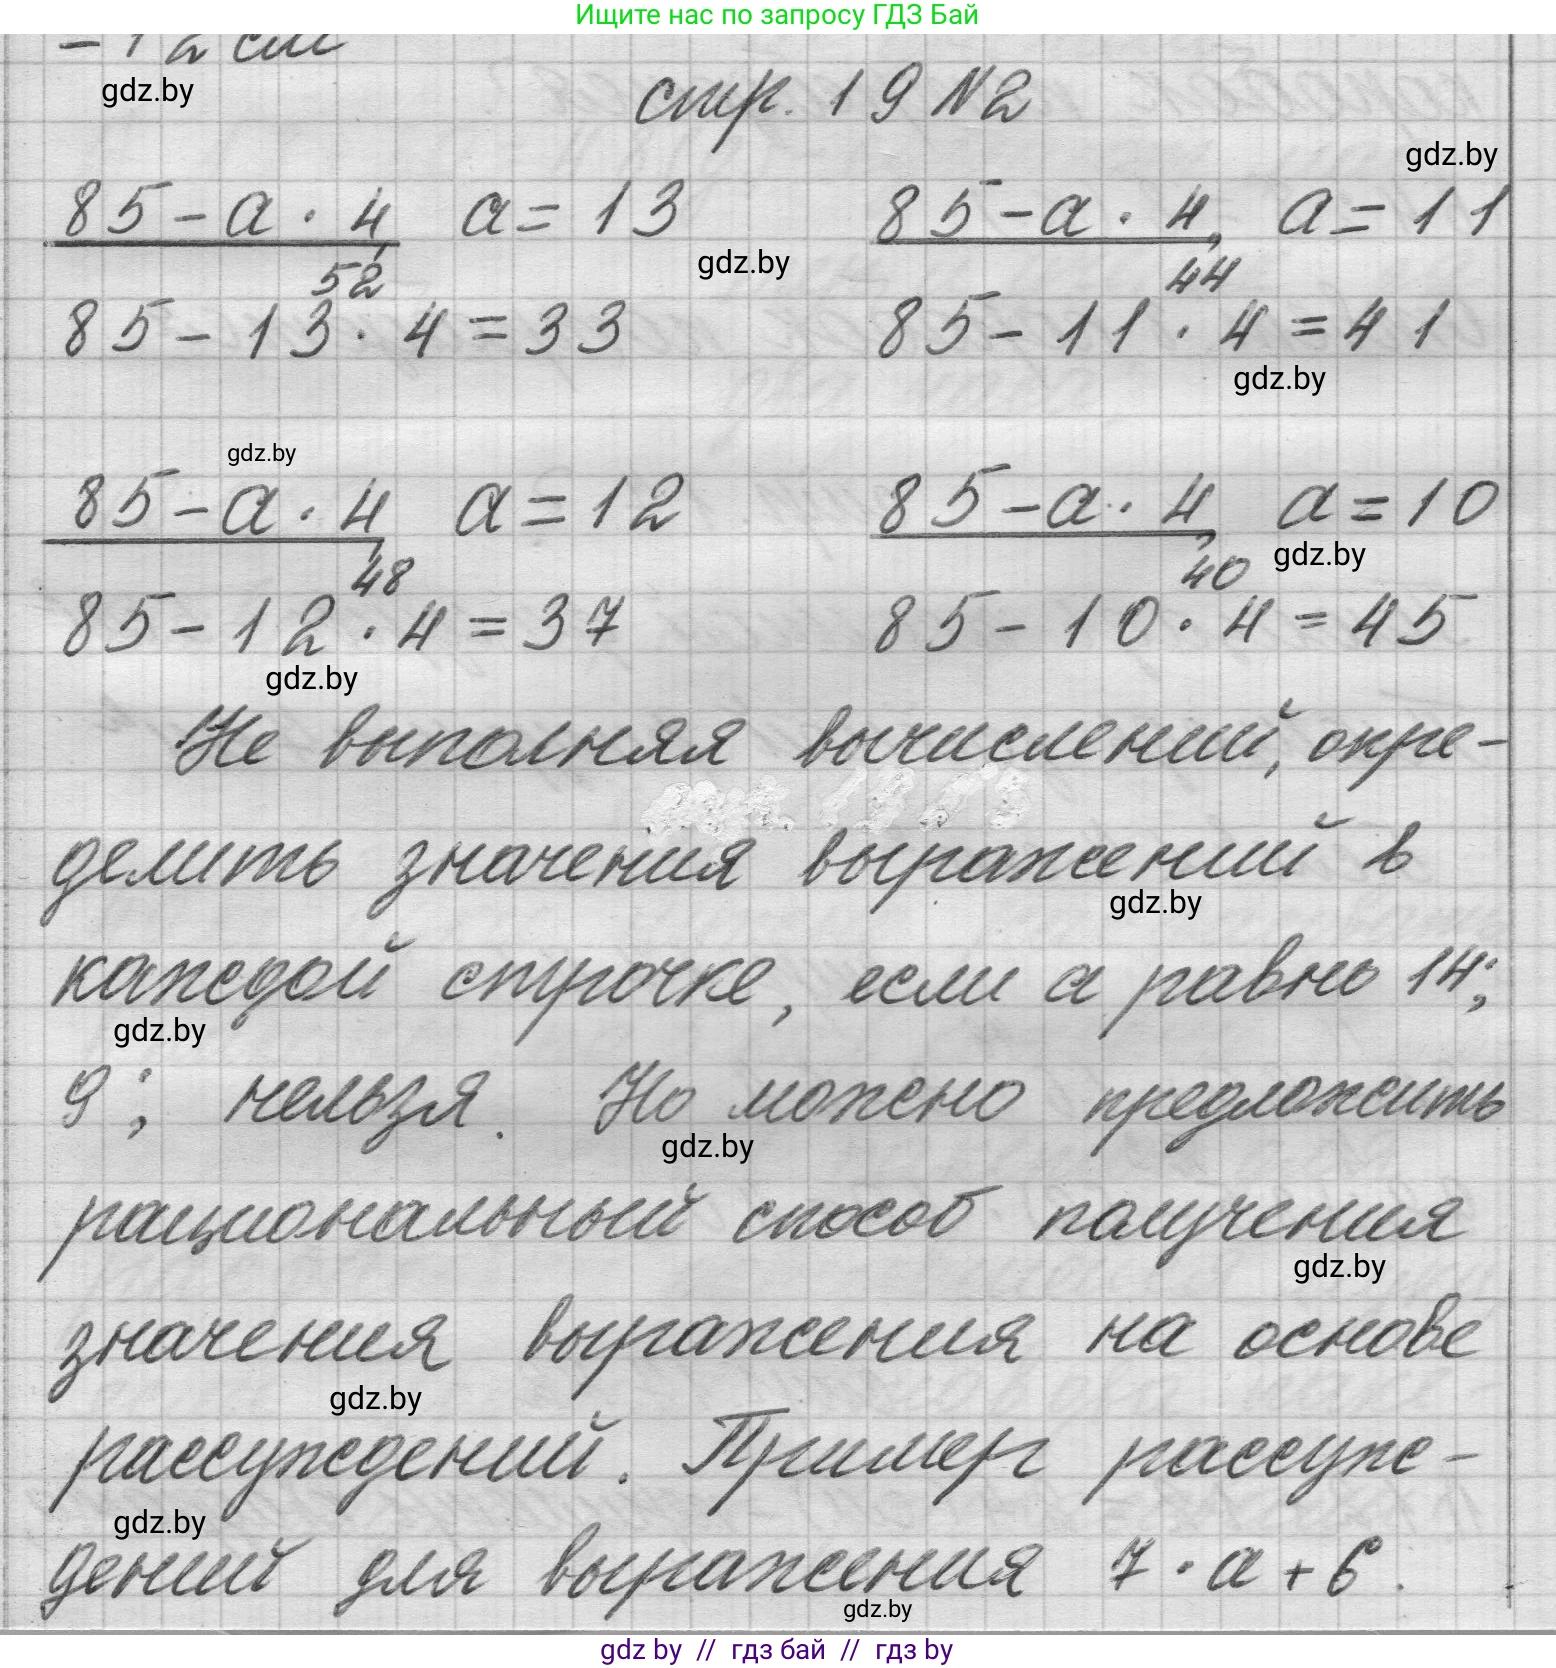 Ищите нас по запросу ГДЗ Бай
- 12 см
gdz.by
стр. 19 №2
gdz.by
85 - a · 4   a = 13   85 - a · 4,   a = 11
52   gdz.by   44
85 - 13 · 4 = 33   85 - 11 · 4 = 41
gdz.by
gdz.by
85 - a · 4   a = 12   85 - a · 4   a = 10
48   40   gdz.by
85 - 12 · 4 = 37   85 - 10 · 4 = 45
gdz.by
Не выполняя вычислений, опре-
делить значения выражений в
gdz.by
каждой строчке, если a равно 14;
gdz.by
9; нельзя. Но можно предложить
gdz.by
рациональный способ получения
gdz.by
значения выражения на основе
gdz.by
рассуждений. Пример рассуж-
gdz.by
дений для выражения 7 · a + 6.
gdz.by
gdz by // гдз бай // гдз by